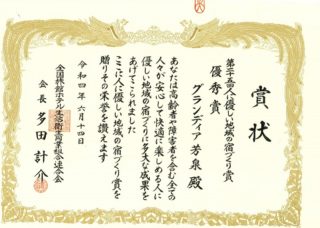 賞状
第二十五回人に優しい地域の宿づくり賞
優秀賞
グランディア芳泉 殿
あなたは高齢者や障害者を含む全ての
人々が安心して快適に楽しめる人に
優しい地域の宿づくりに多大な成果を
あげてこられました
ここに人に優しい地域の宿づくり賞を
贈りその栄誉を讃えます
令和四年六月十四日
全国旅館ホテル生活衛生同業組合連合会
会長 多田計介